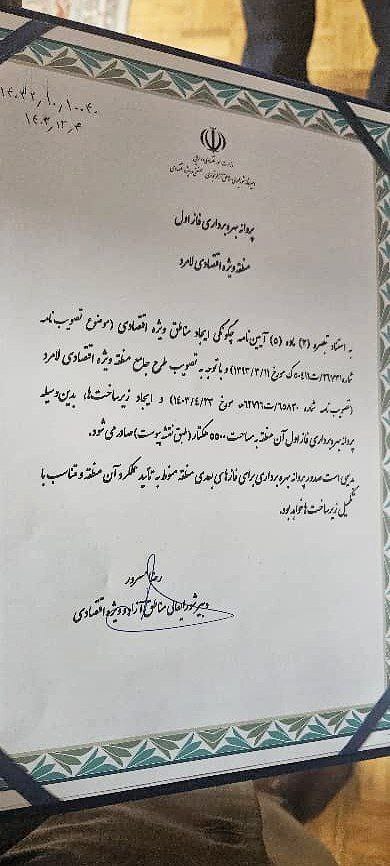 ۱۴۰۳۲/۱۰/۱۰۰۴۰
۱۴۰۳/۱۲/۴
وزارت امور اقتصادی و دارایی
پروانه بهره برداری فاز اول
منطقه ویژه اقتصادی لامرد
به استناد تبصره (۲) ماده (۵) آیین‌نامه چگونگی ایجاد مناطق ویژه اقتصادی (موضوع تصویب‌نامه
شماره ۲۶۷۳۱/ت۵۰۴۱۱ک مورخ ۱۳۹۳/۳/۱۱) و با توجه به تصویب طرح جامع منطقه ویژه اقتصادی لامرد
(تصویب نامه شماره ۶۵۸۳۰/ت۶۲۷۱۶هـ مورخ ۱۴۰۳/۴/۲۳) و ایجاد زیرساخت‌ها، بدین‌وسیله
پروانه بهره برداری فاز اول آن منطقه به مساحت ۵۵۰۰ هکتار (طبق نقشه پیوست) صادر می شود.
بدیهی است صدور پروانه بهره برداری برای فازهای بعدی منطقه منوط به تأیید عملکرد آن منطقه و متناسب با
تکمیل زیرساخت ها خواهد بود.
رضا مسرور
دبیر شورایعالی مناطق آزاد و ویژه اقتصادی